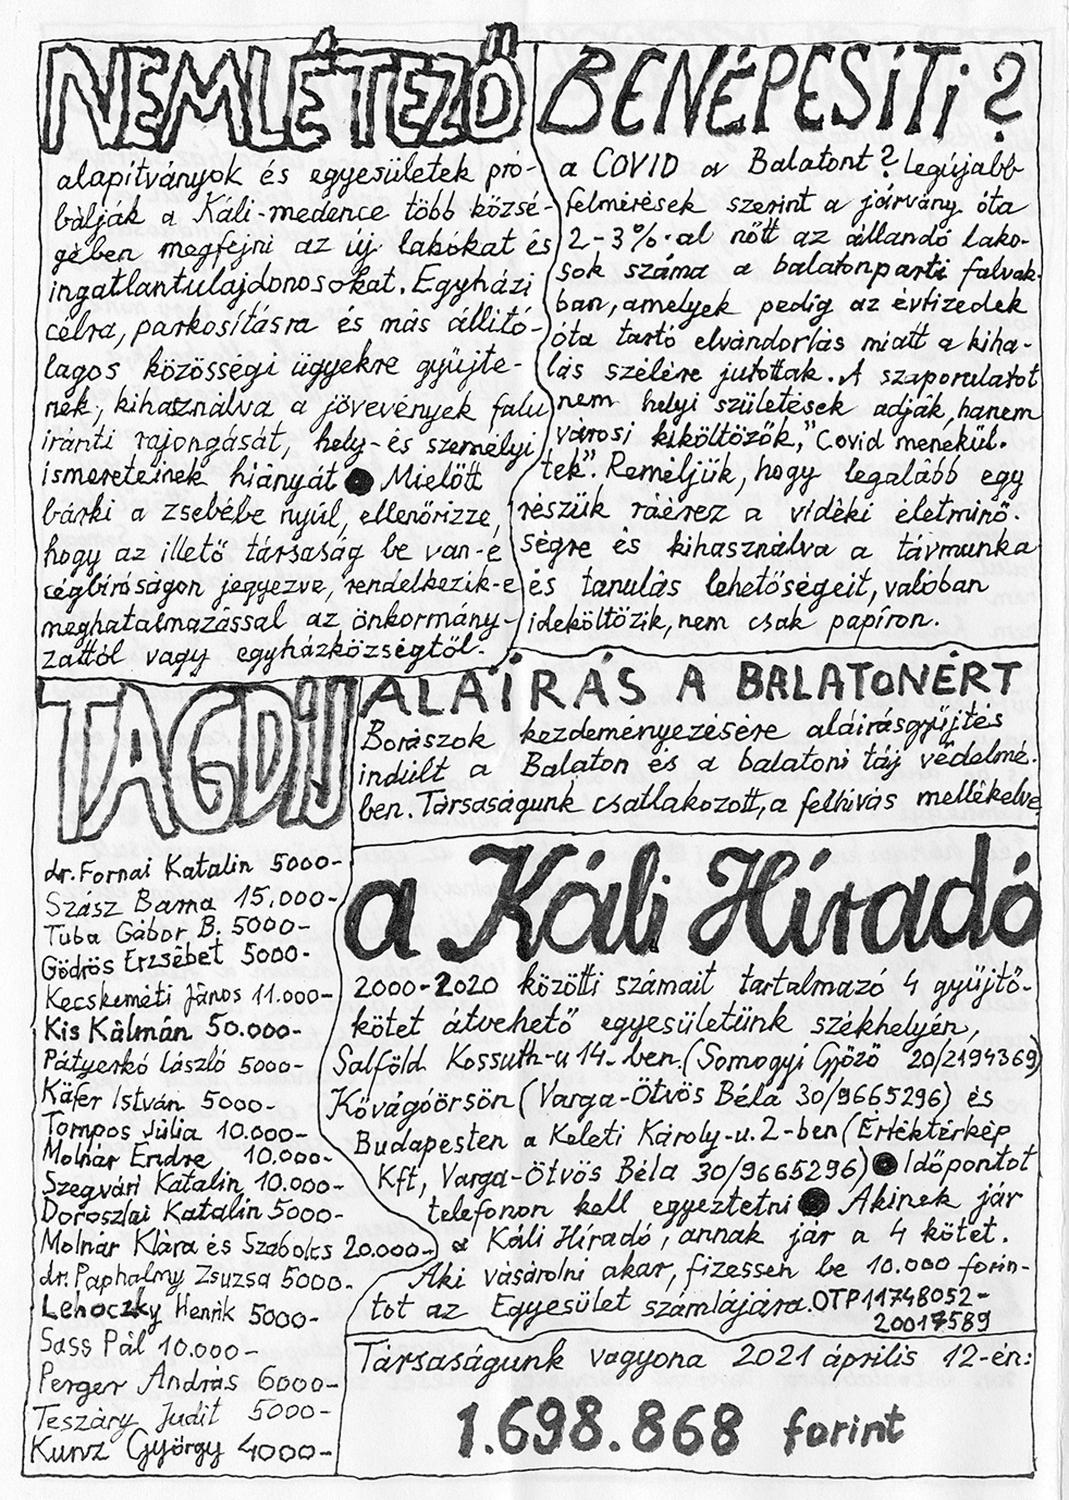 NEMLÉTEZŐ
alapítványok és egyesületek pró-
bálják a Káli-medence több közsé-
gében megfejni az új lakókat és
ingatlantulajdonosokat. Egyházi
célra, parkosításra és más állító-
lagos közösségi ügyekre gyűjte-
nek, kihasználva a jövevények falu
iránti rajongását, hely- és személyi
ismereteinek hiányát ● Mielőtt
bárki a zsebébe nyúl, ellenőrizze,
hogy az illető társaság be van-e
cégbíróságon jegyezve, rendelkezik-e
meghatalmazással az önkormány-
zattól vagy egyházközségtől.
BENÉPESÍTI?
a COVID a Balatont? Legújabb
felmérések szerint a járvány óta
2-3%-al nőtt az állandó lako-
sok száma a balatonparti falvak-
ban, amelyek pedig az évtizedek
óta tartó elvándorlás miatt a kiha-
lás szélére jutottak. A szaporulatot
nem helyi születések adják, hanem
városi kiköltözők, "Covid menekül-
tek". Reméljük, hogy legalább egy
részük ráérez a vidéki életminő-
ségre és kihasználva a távmunka
és tanulás lehetőségeit, valóban
ideköltözik, nem csak papíron.
TAGDÍJ
dr. Fornai Katalin 5000-
Szász Barna 15.000-
Tuba Gábor B. 5000-
Gödrös Erzsébet 5000-
Kecskeméti János 11.000-
Kis Kálmán 50.000-
Pátyerkó László 5000-
Käfer István 5000-
Tompos Júlia 10.000-
Molnár Endre 10.000-
Szegvári Katalin 10.000-
Doroszlai Katalin 5000-
Molnár Klára és Szabolcs 20.000-
dr. Paphalmy Zsuzsa 5000-
Lehoczky Henrik 5000-
Sass Pál 10.000-
Perger András 6000-
Teszáry Judit 5000-
Kunz György 4000-
ALÁÍRÁS A BALATONÉRT
Borászok kezdeményezésére aláírásgyűjtés
indult a Balaton és a balatoni táj védelmé-
ben. Társaságunk csatlakozott, a felhívás mellékelve
a Káli Híradó
2000-2020 közötti számait tartalmazó 4 gyűjtő-
kötet átvehető egyesületünk székhelyén,
Salföld Kossuth-u 14.-ben (Somogyi Győző 20/2194369)
Kővágóörsön (Varga-Ötvös Béla 30/9665296) és
Budapesten a Keleti Károly-u. 2-ben (Értéktérkép
Kft, Varga-Ötvös Béla 30/9665296) ● Időpontot
telefonon kell egyeztetni ● Akinek jár
a Káli Híradó, annak jár a 4 kötet.
Aki vásárolni akar, fizessen be 10.000 forin-
tot az Egyesület számlájára. OTP 11748052-
20017589
Társaságunk vagyona 2021 április 12-én:
1.698.868 forint